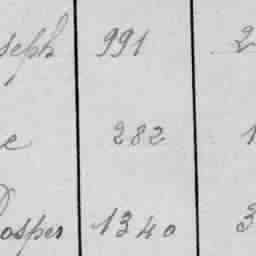 seph 991 2
e 282 1
rosper 1340 3